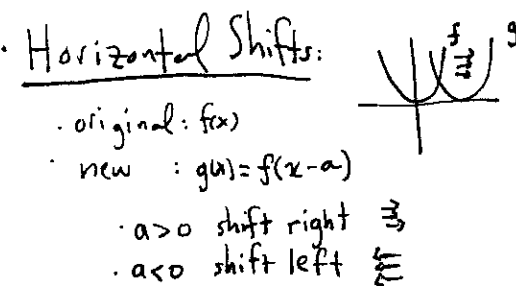 · Horizontal Shifts:
f g
· original: f(x)
· new : g(x)=f(x-a)
· a>0 shift right
· a<0 shift left